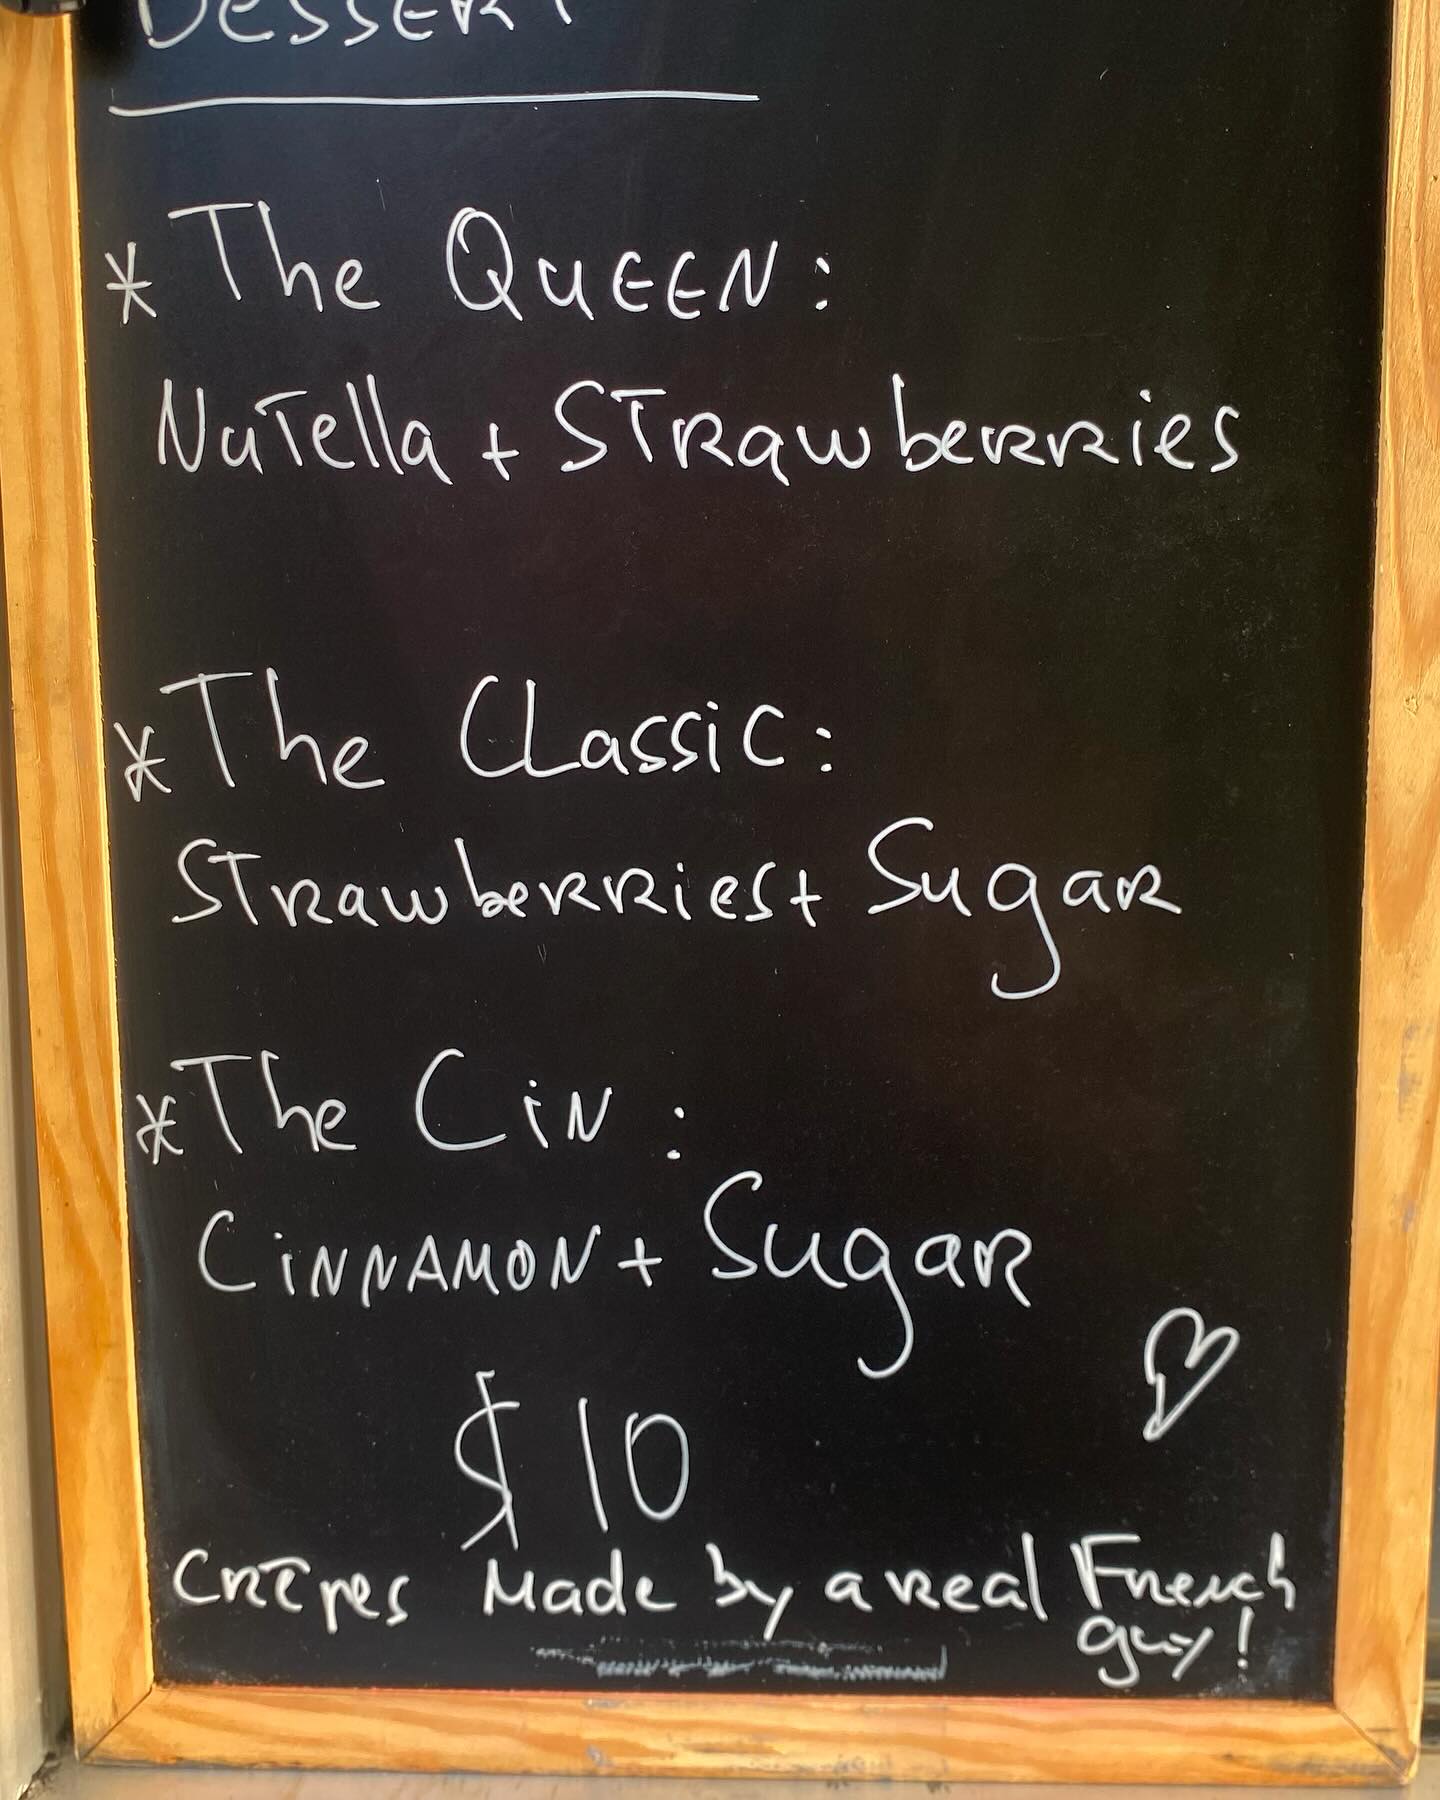 DESSERT
* The QUEEN:
NuTella + STRawbeRRies
* The CLassic:
STRawbeRRies + SugaR
* The CiN:
CiNNAMON + SugaR
$10
CRÊpes Made by a Real FRench
guy!